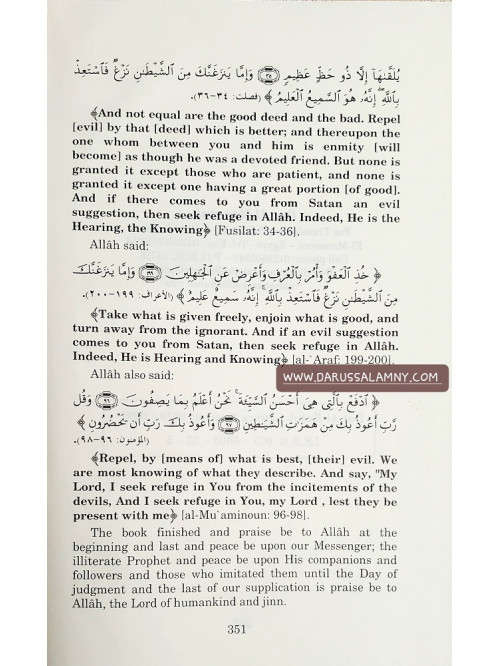 يُلَقَّىٰهَآ إِلَّا ذُو حَظٍّ عَظِيمٍ ۝٣٥ وَإِمَّا يَنزَغَنَّكَ مِنَ الشَّيْطَٰنِ نَزْغٌ فَاسْتَعِذْ
بِاللَّهِ ۖ إِنَّهُۥ هُوَ السَّمِيعُ الْعَلِيمُ ﴾ (فصلت: ٣٤-٣٦).
﴾And not equal are the good deed and the bad. Repel
[evil] by that [deed] which is better; and thereupon the
one whom between you and him is enmity [will
become] as though he was a devoted friend. But none is
granted it except those who are patient, and none is
granted it except one having a great portion [of good].
And if there comes to you from Satan an evil
suggestion, then seek refuge in Allâh. Indeed, He is the
Hearing, the Knowing﴿ [Fusilat: 34-36].
Allâh said:
﴿ خُذِ الْعَفْوَ وَأْمُرْ بِالْعُرْفِ وَأَعْرِضْ عَنِ الْجَٰهِلِينَ ۝١٩٩ وَإِمَّا يَنزَغَنَّكَ
مِنَ الشَّيْطَٰنِ نَزْغٌ فَاسْتَعِذْ بِاللَّهِ ۚ إِنَّهُۥ سَمِيعٌ عَلِيمٌ ﴾ (الأعراف: ١٩٩-٢٠٠).
﴾Take what is given freely, enjoin what is good, and
turn away from the ignorant. And if an evil suggestion
comes to you from Satan, then seek refuge in Allâh.
Indeed, He is Hearing and Knowing﴿ [al-`Araf: 199-200].
WWW.DARUSSALAMNY.COM
Allâh also said:
﴿ ادْفَعْ بِالَّتِى هِىَ أَحْسَنُ السَّيِّئَةَ ۚ نَحْنُ أَعْلَمُ بِمَا يَصِفُونَ ۝٩٦ وَقُل
رَّبِّ أَعُوذُ بِكَ مِنْ هَمَزَٰتِ الشَّيَٰطِينِ ۝٩٧ وَأَعُوذُ بِكَ رَبِّ أَن يَحْضُرُونِ ﴾
(المؤمنون: ٩٦-٩٨).
﴾Repel, by [means of] what is best, [their] evil. We
are most knowing of what they describe. And say, "My
Lord, I seek refuge in You from the incitements of the
devils, And I seek refuge in You, my Lord , lest they be
present with me﴿ [al-Mu`aminoun: 96-98].
The book finished and praise be to Allâh at the
beginning and last and peace be upon our Messenger; the
illiterate Prophet and peace be upon His companions and
followers and those who imitated them until the Day of
judgment and the last of our supplication is praise be to
Allâh, the Lord of humankind and jinn.
351